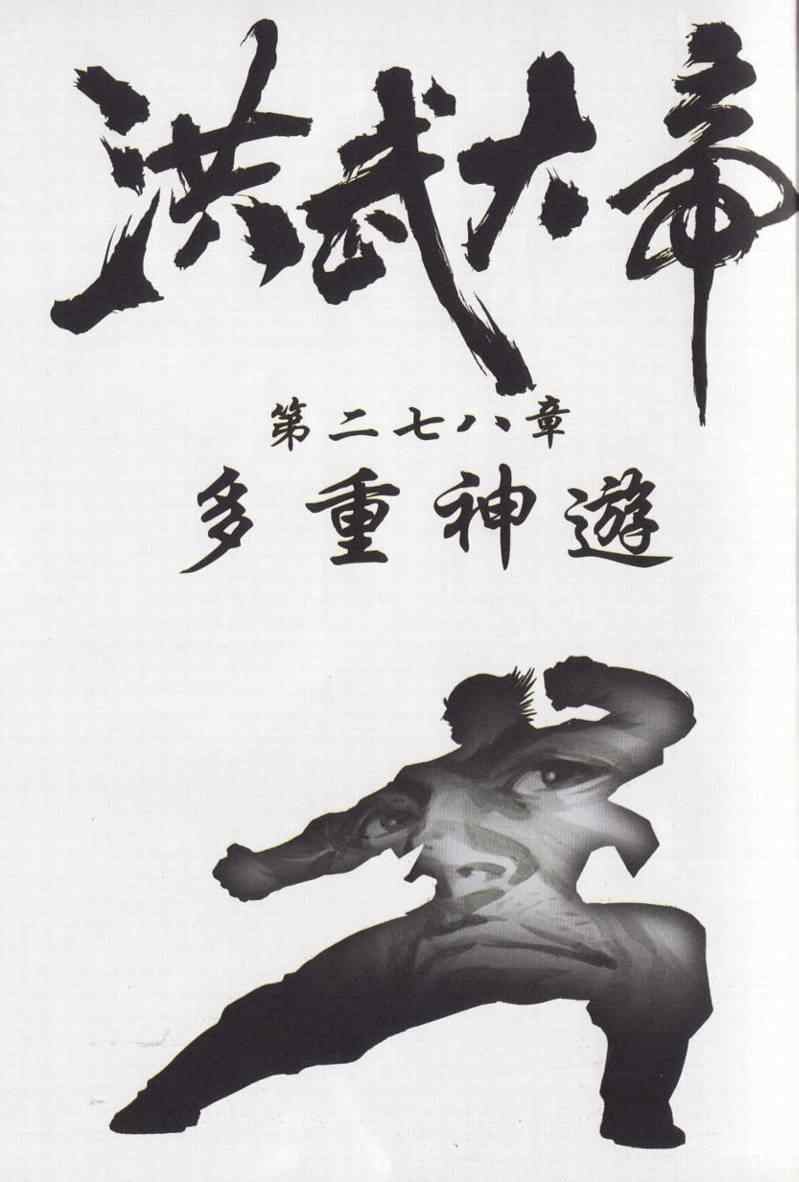 洪武大帝
第二七八章
多重神遊